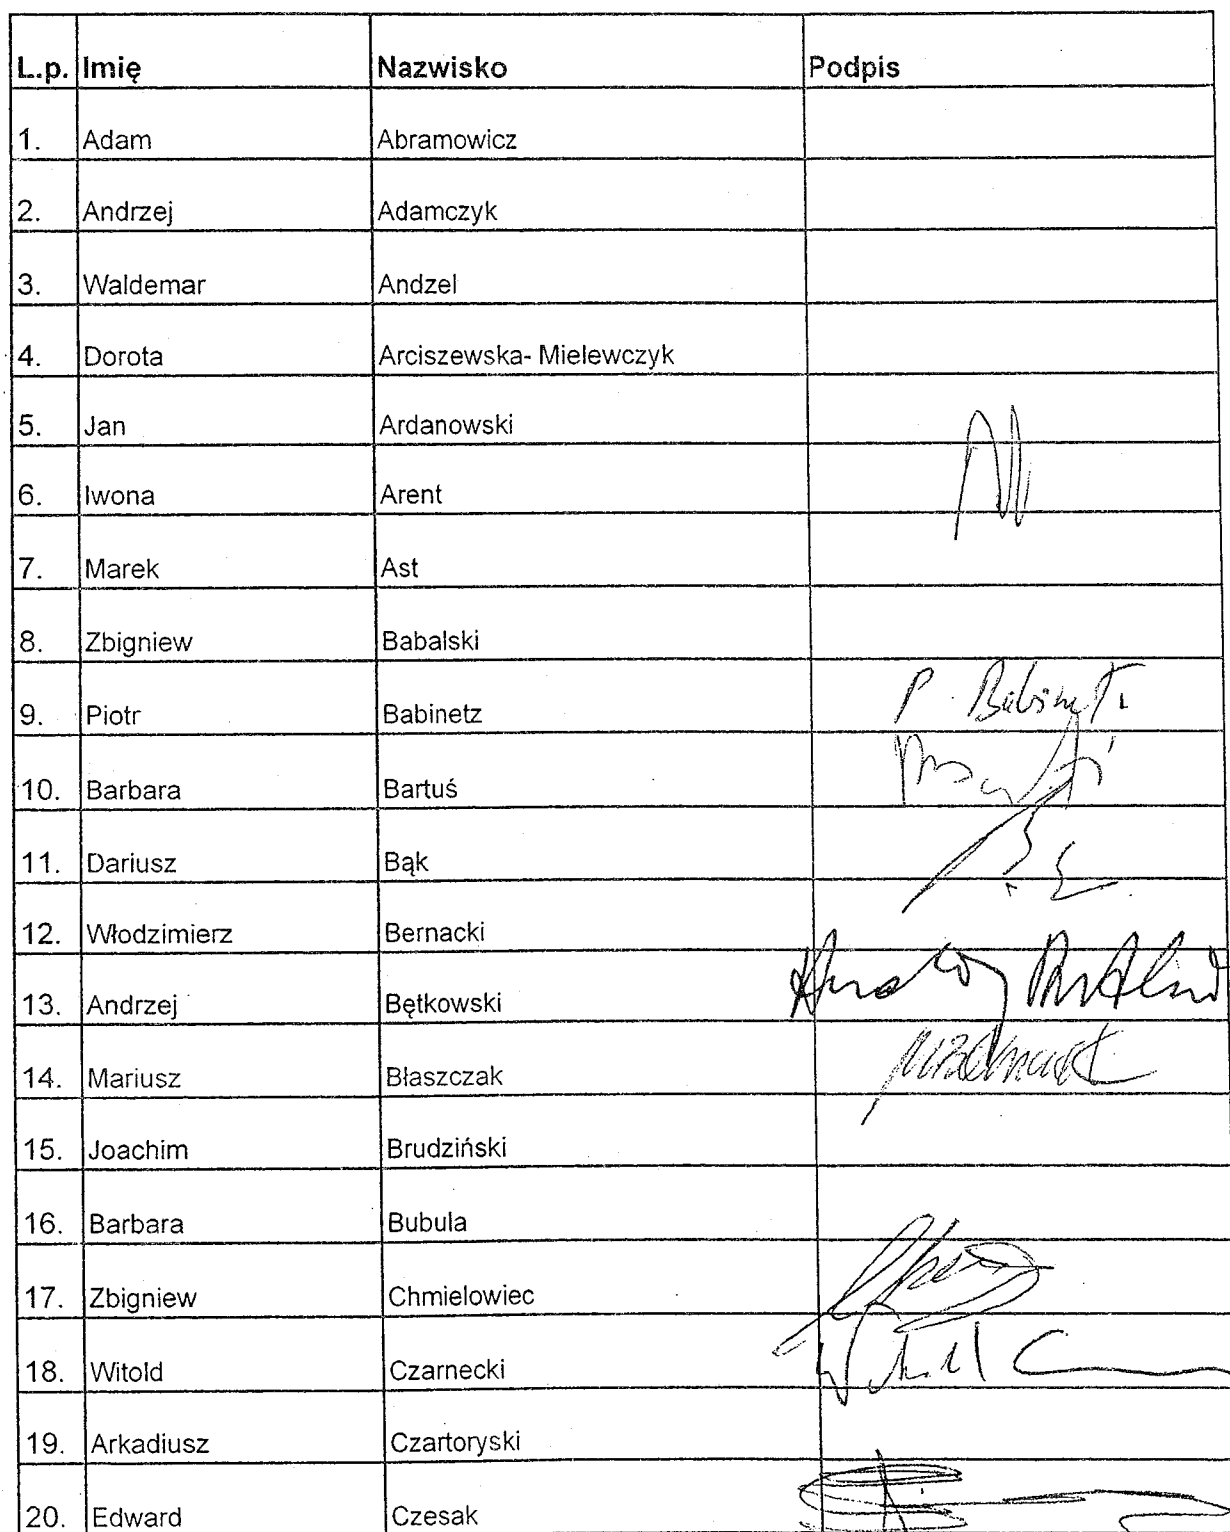 L.p. Imię Nazwisko Podpis
1. Adam Abramowicz
2. Andrzej Adamczyk
3. Waldemar Andzel
4. Dorota Arciszewska- Mielewczyk
5. Jan Ardanowski
6. Iwona Arent
7. Marek Ast
8. Zbigniew Babalski
9. Piotr Babinetz P. Babinetz
10. Barbara Bartuś
11. Dariusz Bąk
12. Włodzimierz Bernacki
13. Andrzej Bętkowski Andrzej
14. Mariusz Błaszczak
15. Joachim Brudziński
16. Barbara Bubula
17. Zbigniew Chmielowiec
18. Witold Czarnecki Witold C
19. Arkadiusz Czartoryski
20. Edward Czesak